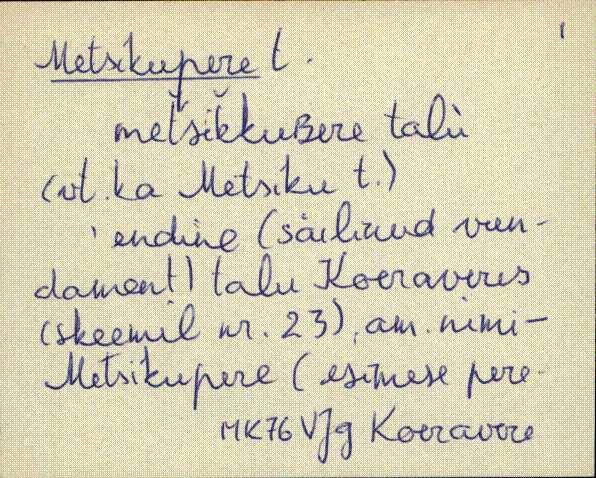 1
Metsikupere t.
met̆sik̆kuʙere talù
(vt. ka Metsiku t.)
'endine (säilinud vun-
dament) talu Koeraveres
(skeemil nr. 23), am. nimi-
Metsikupere (esimese pere-
MK76 VJg Koeravere